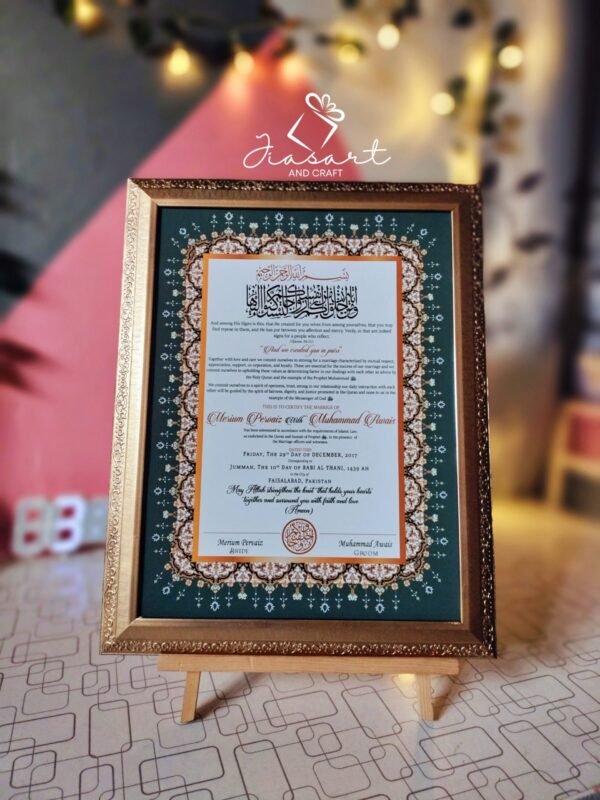 Jiasart
AND CRAFT
بسم الله الرحمن الرحيم
And among His Signs is this, that He created for you wives from among yourselves, that you may
find repose in them, and He has put between you affection and mercy. Verily, in that are indeed
signs for a people who reflect.
"And we created you in pairs"
Together with love and care we commit ourselves to striving for a marriage characterized by mutual respect,
appreciation, support, co operation, and loyalty. These are essential for the success of our marriage and we
commit ourselves to upholding these values as determining factor in our dealings with each other as advice by
the Holy Quran and the example of the Prophet Muhammad ﷺ
We commit ourselves to a spirit of openness, trust, strong in our relationship our daily interaction with each
other will be guided by the spirit of fairness, dignity, and justice promoted in the Quran and sunnah to us in the
example of the Messenger of God ﷺ
THIS IS TO CERTIFY THE MARRIGE OF
Merium Pervaiz with Muhammad Awais
has been solemnized in accordance with the requirements of Islamic Law,
as embodied in the Quran and Sunnah of Prophet ﷺ, in the presence of
the Marriage officers and witnesses.
DATED THIS
FRIDAY, THE 29th DAY OF DECEMBER, 2017
Corresponding to
JUMMAH, THE 10th DAY OF RABI AL THANI, 1439 AH
in the City of
FAISALABAD, PAKISTAN
May Allah strengthen the knot that holds your hearts
together and surround you with faith and love
(Ameen)
Merium Pervaiz Muhammad Awais
BRIDE GROOM